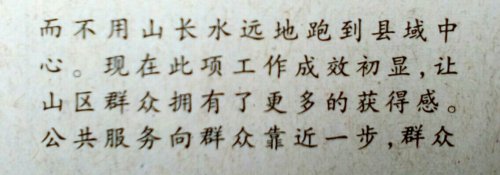 而不用山长水远地跑到县域中
心。现在此项工作成效初显,让
山区群众拥有了更多的获得感。
公共服务向群众靠近一步,群众